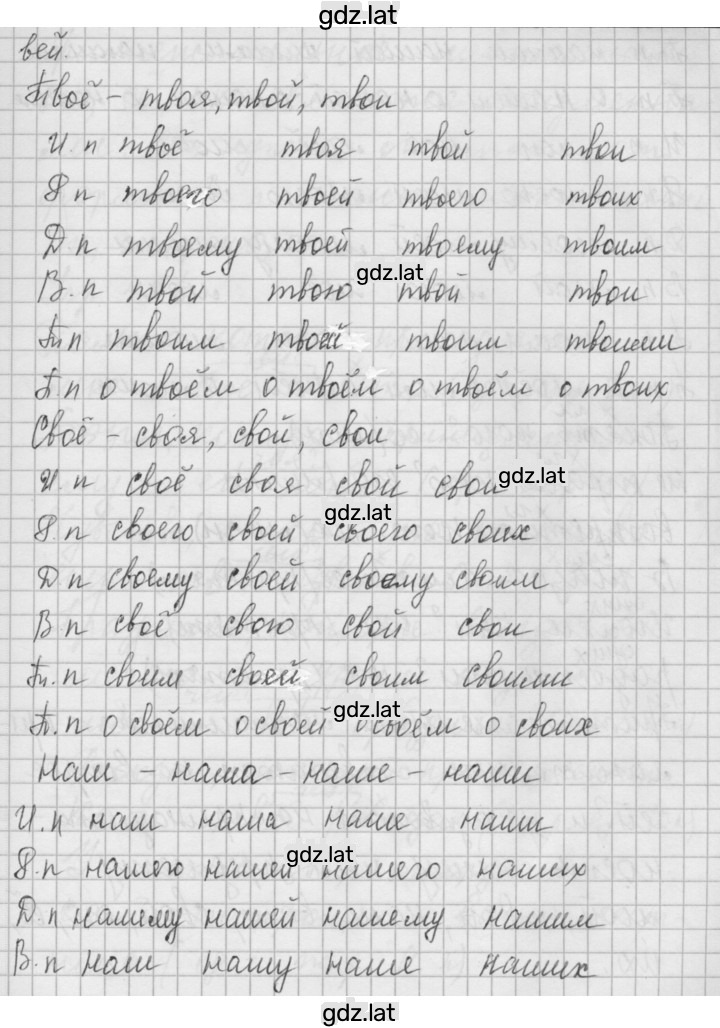 gdz.lat
вей.
Твоё - твоя, твой, твои
И. п твоё твоя твой твои
Р п твоего твоей твоего твоих
Д п твоему твоей твоему твоим
gdz.lat
В. п твой твою твой твои
Тп п твоим твоей твоим твоими
П. п о твоём о твоём о твоём о твоих
Своё - своя, свой, свои
И п своё своя свой свои
gdz.lat
gdz.lat
Р. п своего своей своего своих
Д п своему своей своему своим
В п своё свою свой свои
Тп. п своим своей своим своими
gdz.lat
П. п о своём о своей о своём о своих
Наш - наша - наше - наши
И. п наш наша наше наши
gdz.lat
Р. п нашего нашей нашего наших
Д. п нашему нашей нашему нашим
В. п наш нашу наше наших
gdz.lat